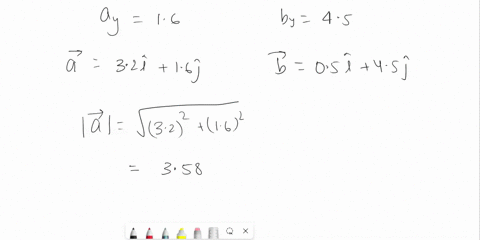 a_y = 1.6   b_y = 4.5
a⃗ = 3.2î + 1.6ĵ   b⃗ = 0.5î + 4.5ĵ
|a⃗| = √((3.2)² + (1.6)²)
= 3.58